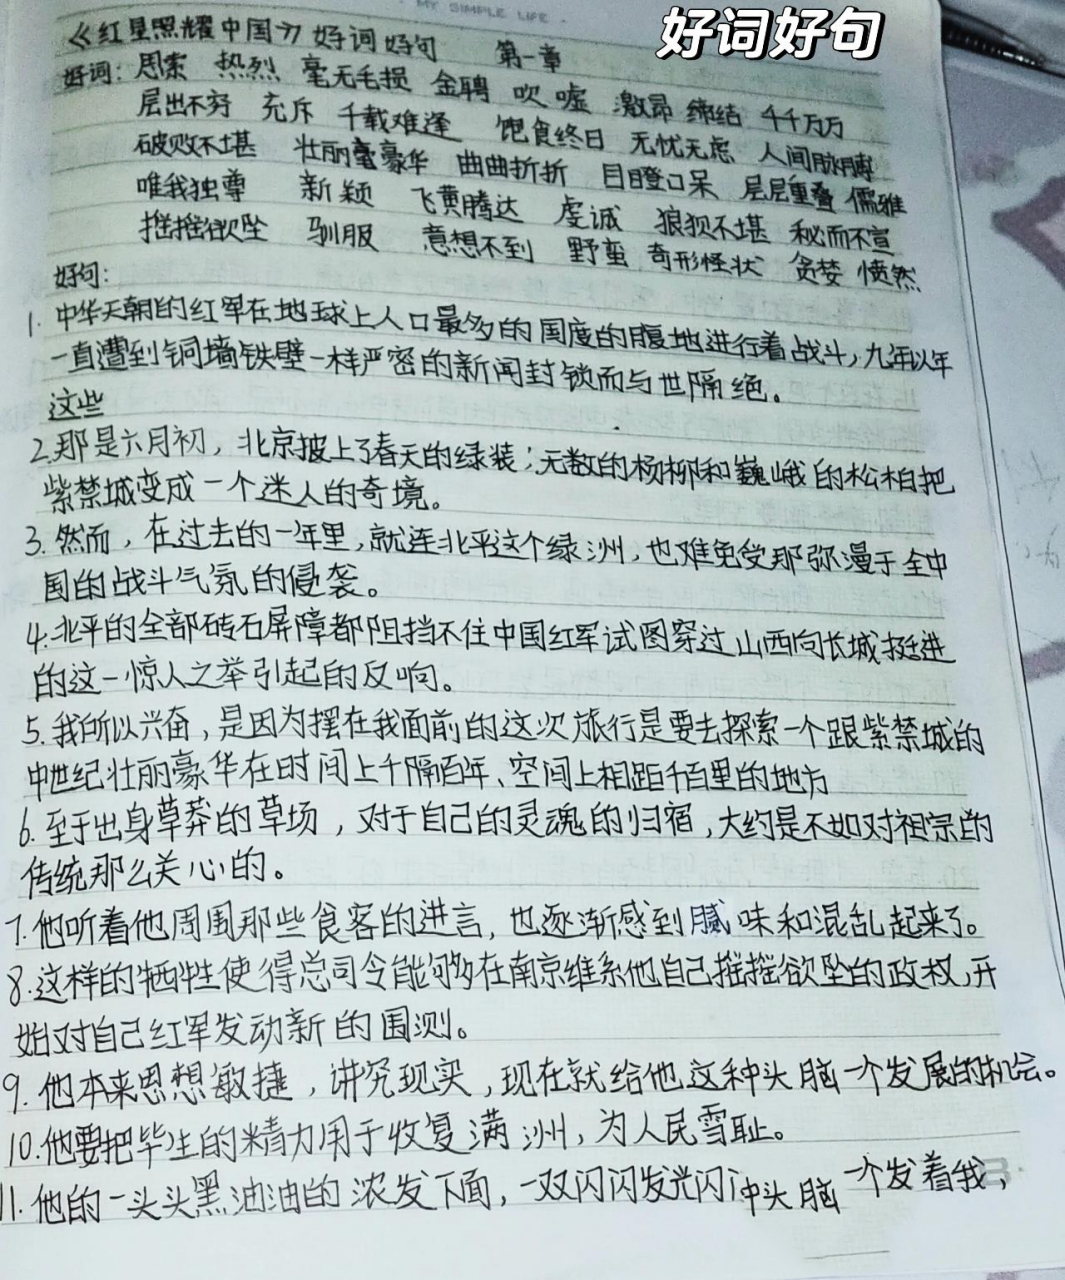 MY SIMPLE LIFE
好词好句
《红星照耀中国》好词好句 第一章
好词：思索 热烈 毫无毛损 金聘 吹嘘 激昂 缔结 千千万万
层出不穷 充斥 千载难逢 饱食终日 无忧无虑 人间胭脯
破败不堪 壮丽豪华 曲曲折折 目瞪口呆 层层重叠 儒雅
唯我独尊 新颖 飞黄腾达 虔诚 狼狈不堪 秘而不宣
摇摇欲坠 驯服 意想不到 野蛮 奇形怪状 贪婪 愤然
好句：
1. 中华天朝的红军在地球上人口最多的国度的腹地进行着战斗，九年以年
一直遭到铜墙铁壁一样严密的新闻封锁而与世隔绝。
这些
2.那是六月初，北京披上了春天的绿装；无数的杨柳和巍峨的松柏把
紫禁城变成一个迷人的奇境。
3. 然而，在过去的一年里，就连北平这个绿洲，也难免受那弥漫于全中
国的战斗气氛的侵袭。
4.北平的全部砖石屏障都阻挡不住中国红军试图穿过山西向长城挺进
的这一惊人之举引起的反响。
5.我所以兴奋，是因为摆在我面前的这次旅行是要去探索一个跟紫禁城的
中世纪壮丽豪华在时间上千隔百年、空间上相距千百里的地方
6.至于出身草莽的草场，对于自己的灵魂的归宿，大约是不如对祖宗的
传统那么关心的。
7.他听着他周围那些食客的进言，也逐渐感到腻味和混乱起来了。
8.这样的牺牲使得总司令能够在南京维系他自己摇摇欲坠的政权，开
始对自己红军发动新的围测。
9. 他本来思想敏捷，讲究现实，现在就给他这种头脑一个发展的机会。
10.他要把毕生的精力用于收复满洲，为人民雪耻。
11.他的一头头黑油油的浓发下面，一双闪闪发光闪冲头脑一个发着我，